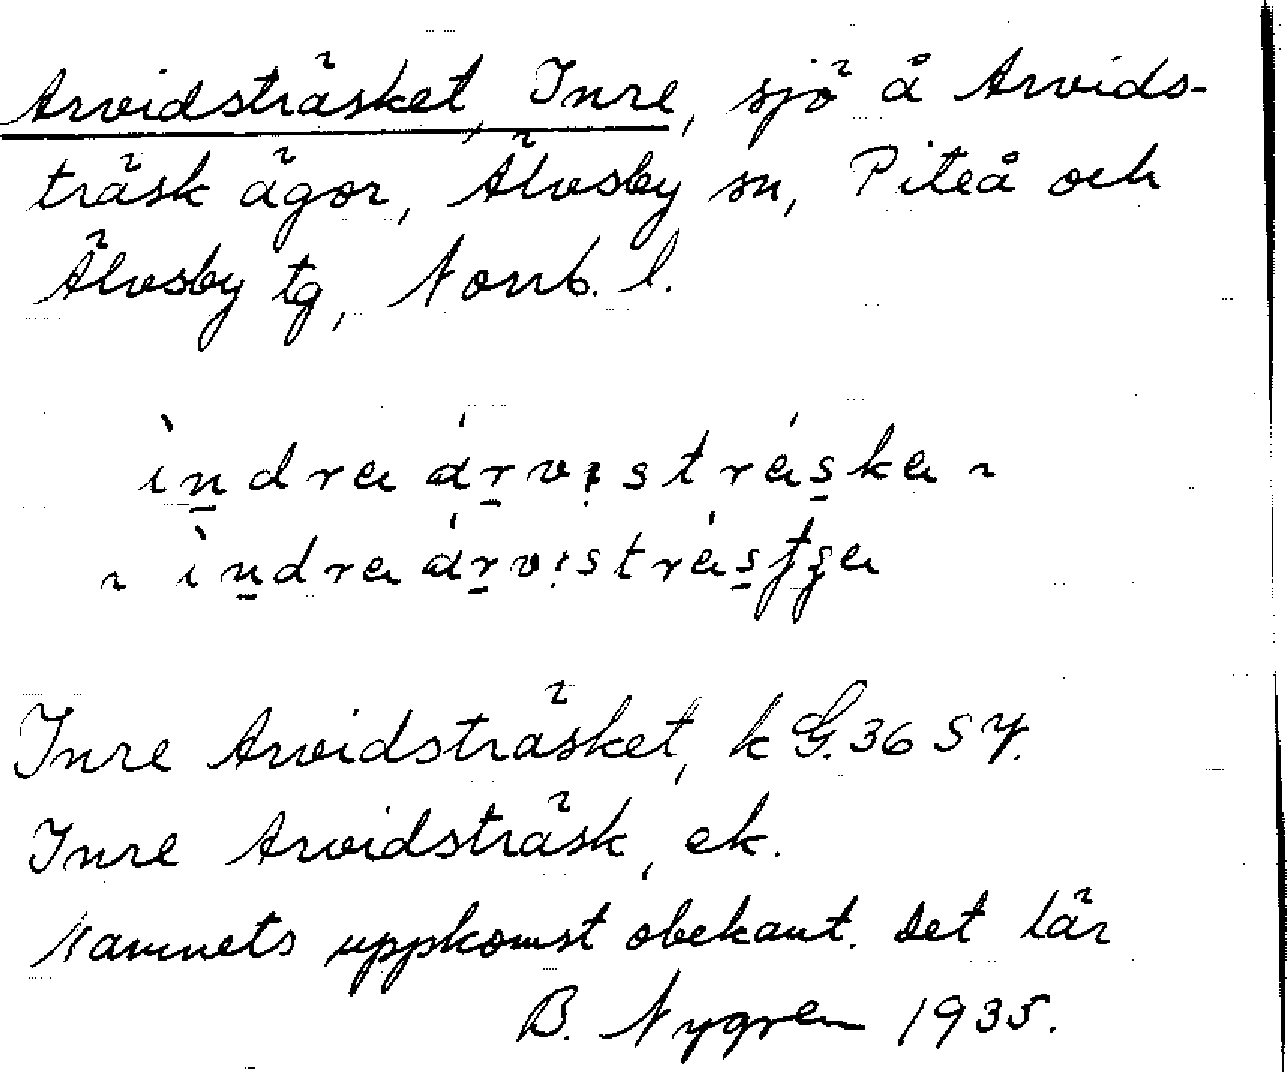 Arvidsträsket, Inre, sjö å Arvids-
träsk ägor, Älvsby sn, Piteå och
Älvsby tg, Norrb. l.
Inre Arvidsträsket, k G. 36 S Y.
Inre Arvidsträsk, ek.
Namnets uppkomst obekant. Det lär
B. Nygren 1935.